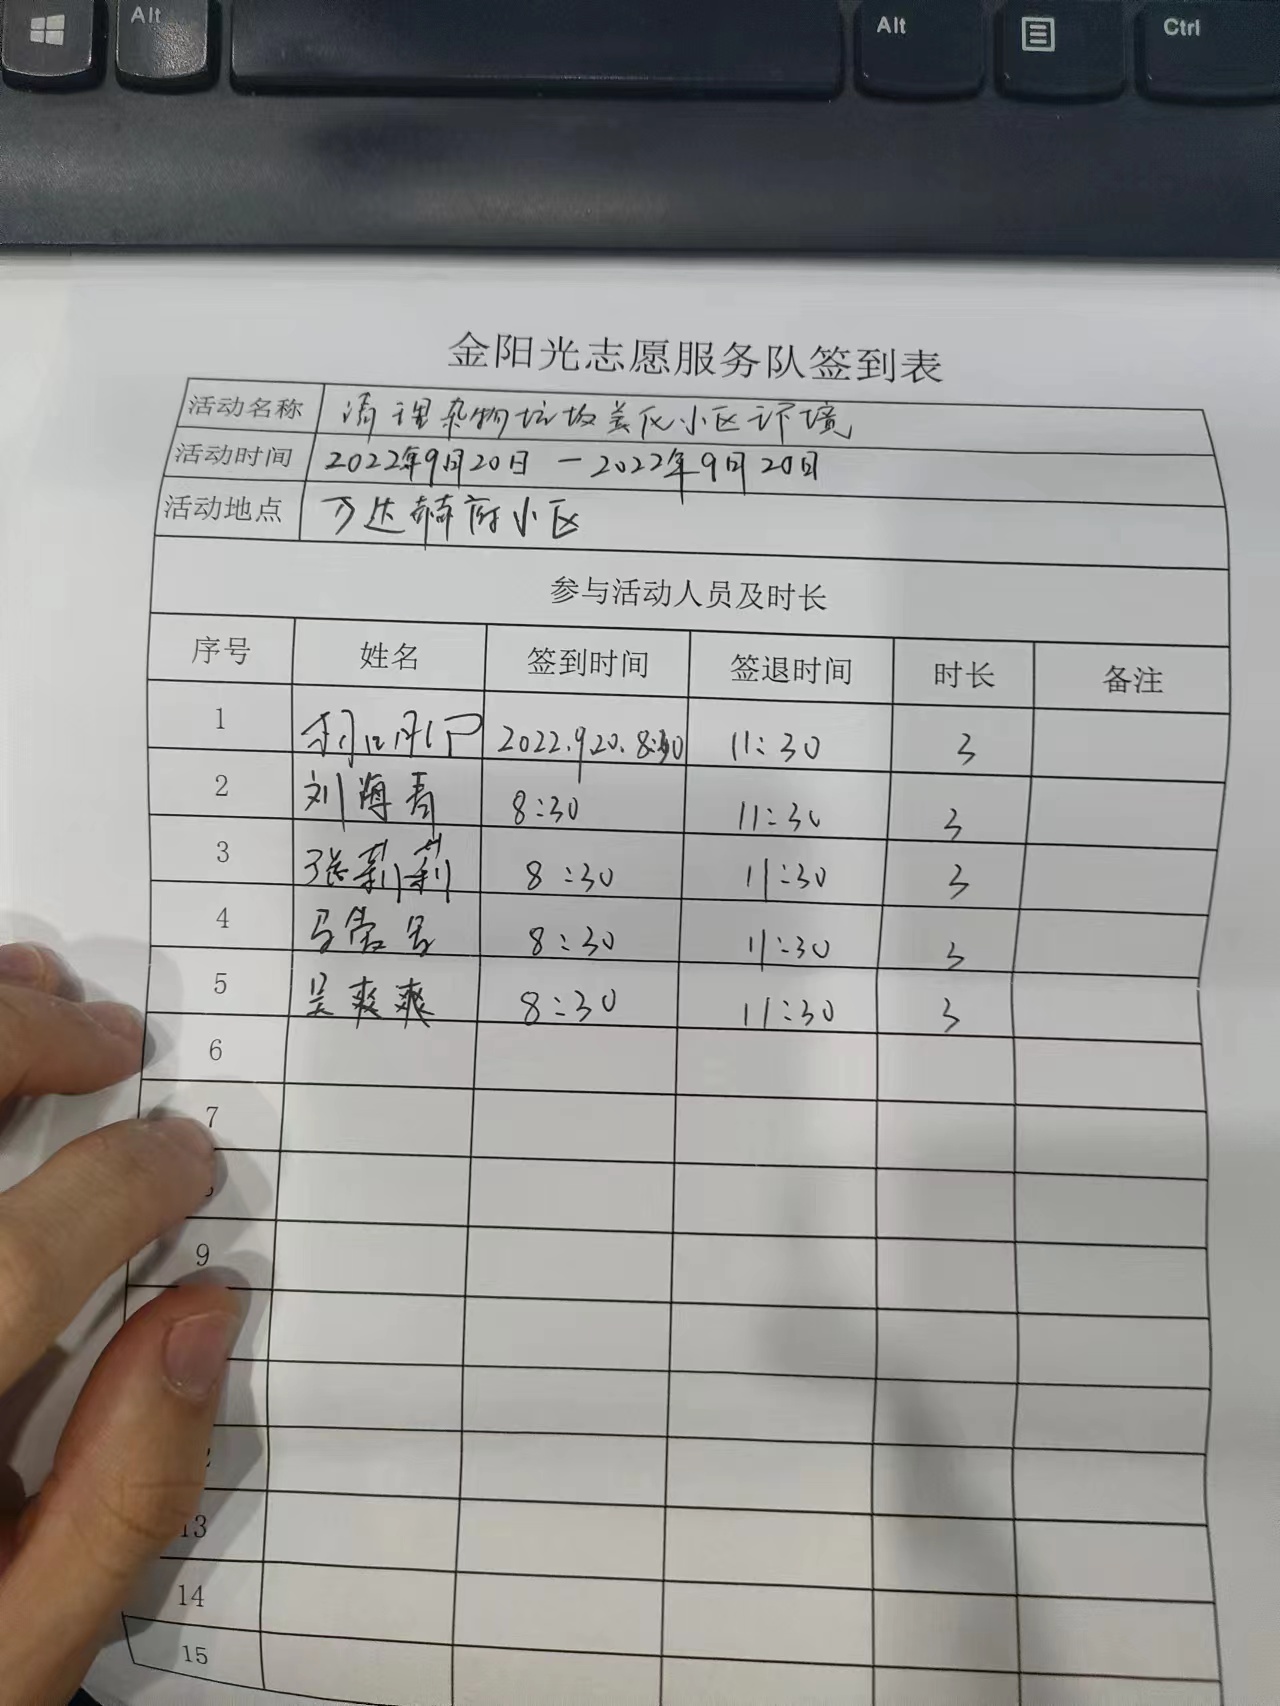 Alt Alt Ctrl
金阳光志愿服务队签到表
活动名称 清理杂物垃圾美化小区环境
活动时间 2022年9月20日 — 2022年9月20日
活动地点 万达 府小区
参与活动人员及时长
序号 姓名 签到时间 签退时间 时长 备注
1 2022.9.20. 8:30 11:30 3
2 刘海青 8:30 11:30 3
3 张莉莉 8:30 11:30 3
4 马 8:30 11:30 3
5 吴爽爽 8:30 11:30 3
6
7
9
13
14
15